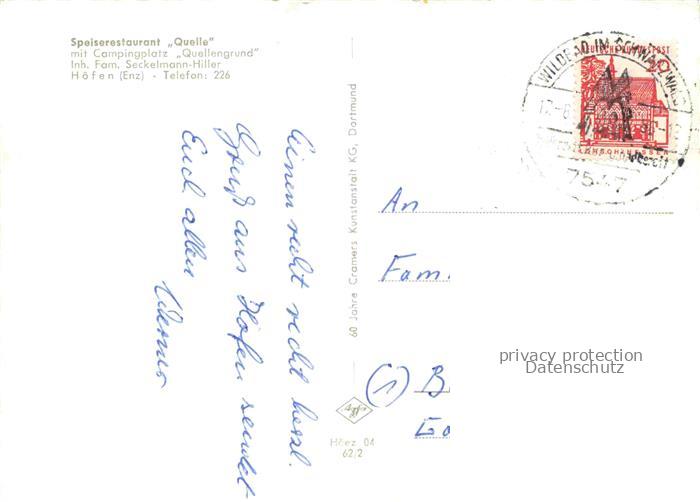 Speiserestaurant „Quelle"
mit Campingplatz „Quellengrund"
Inh. Fam. Seckelmann-Hiller
Höfen (Enz) - Telefon: 226
Einen recht recht herzl.
Gruß aus Höfen sendet
Euch allen
Werner
60 Jahre Cramers Kunstanstalt KG, Dortmund
Agfa
Höez 04
62/2
WILDBAD IM SCHWARZWALD
7547
DEUTSCHE BUNDESPOST
20
LORSCH/HESSEN
An
Fam.
(1) B
Go
privacy protection
Datenschutz